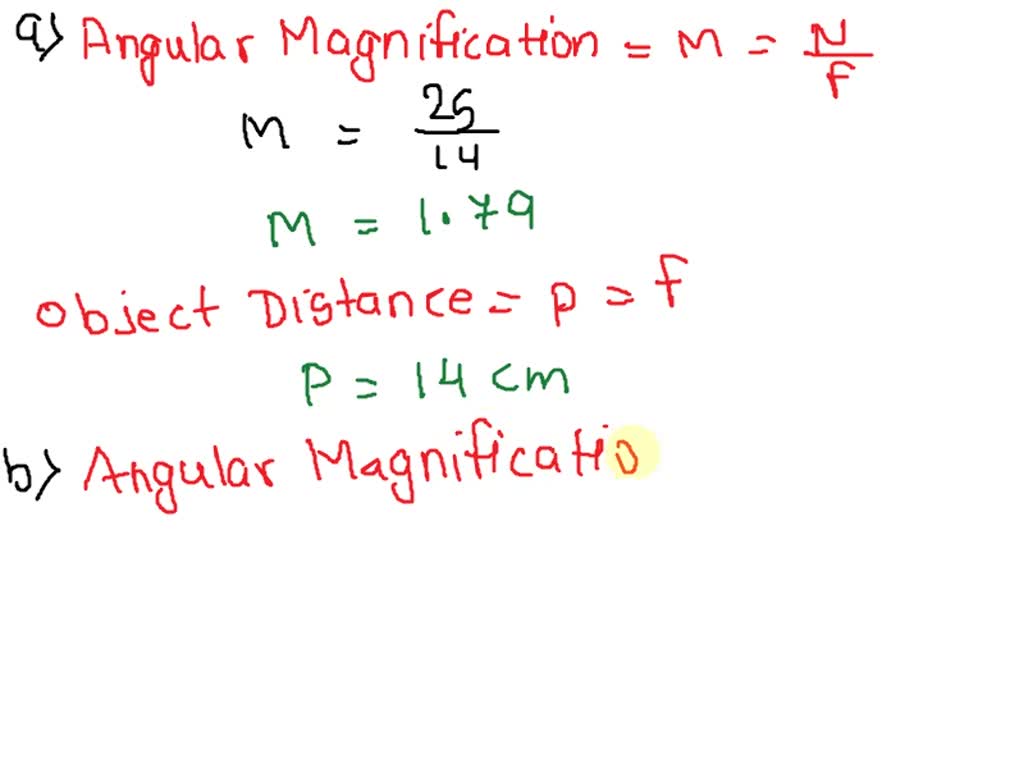 a) Angular Magnification = M = N/f
M = 25/14
M = 1.79
Object Distance = p = f
P = 14 cm
b) Angular Magnificatio